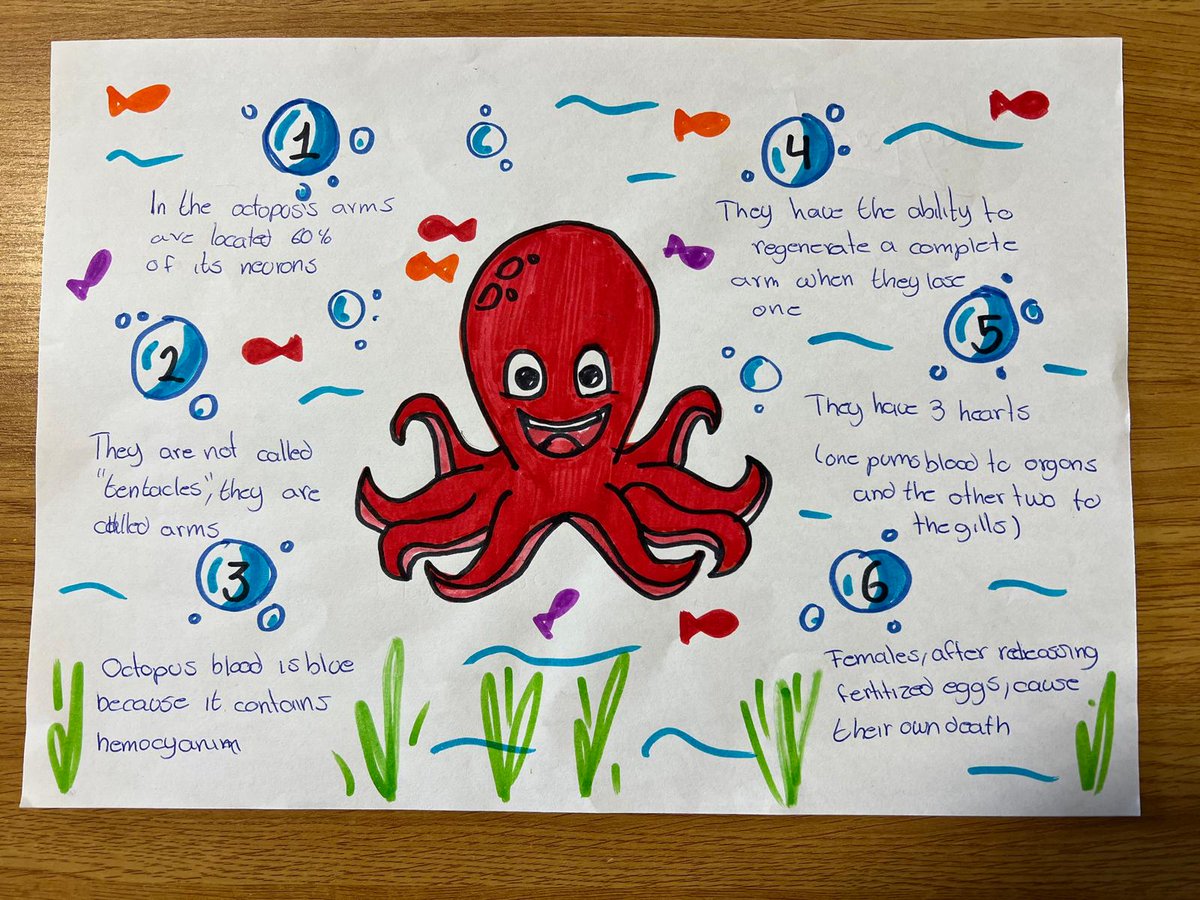 1
In the octopos's arms
are located 60%
of its neurons
2
They are not called
"tentacles", they are
called arms
3
Octopus blood is blue
because it contains
hemocyanum
4
They have the ability to
regenerate a complete
arm when they lose
one
5
They have 3 hearts
(one pums blood to organs
and the other two to
the gills)
6
Females, after releassing
fertitized eggs, cause
their own death